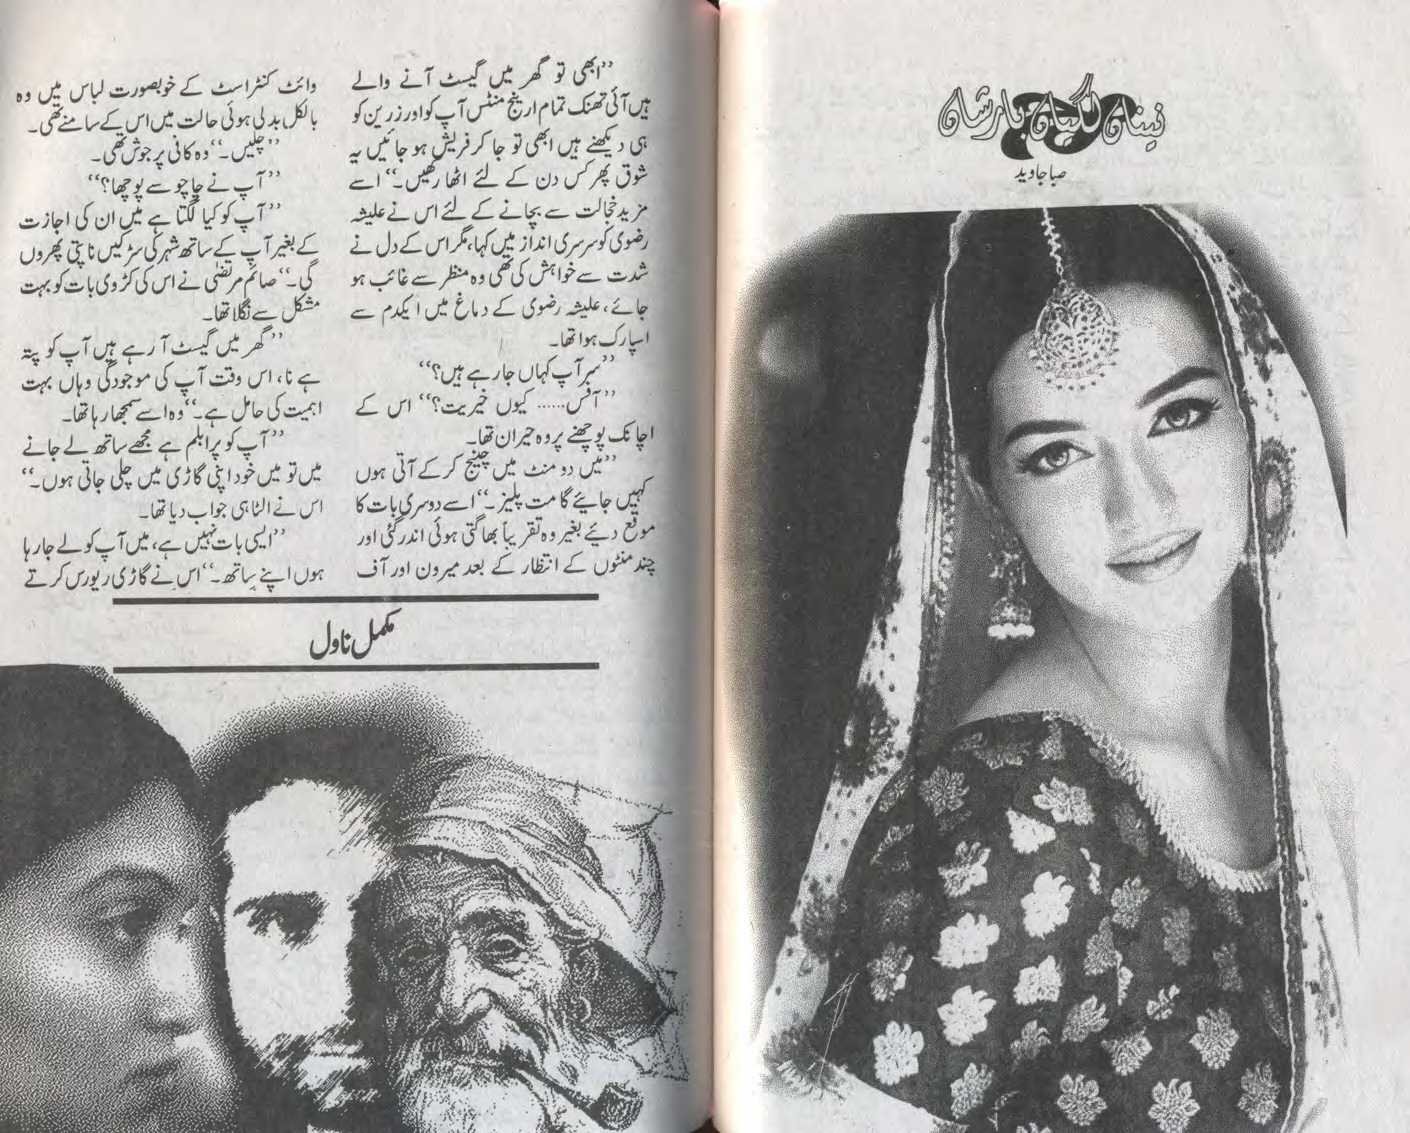 نیناں لگیاں بارشاں
صبا جاوید
’’ابھی تو گھر میں گیسٹ آنے والے
ہیں آئی تھنک تمام ارینج منٹس آپ کو اور زرین کو
ہی دیکھنے ہیں ابھی تو جا کر فریش ہو جائیں یہ
شوق پھر کس دن کے لئے اٹھا رکھیں۔‘‘ اسے
مزید خجالت سے بچانے کے لئے اس نے علیشہ
رضوی کو سرسری انداز میں کہا، مگر اس کے دل نے
شدت سے خواہش کی تھی وہ منظر سے غائب ہو
جائے، علیشہ رضوی کے دماغ میں ایکدم سے
اسپارک ہوا تھا۔
’’سر آپ کہاں جا رہے ہیں؟‘‘
’’آفس..... کیوں خیریت؟‘‘ اس کے
اچانک پوچھنے پر وہ حیران تھا۔
’’میں دو منٹ میں چینج کر کے آتی ہوں
کہیں جائیے گا مت پلیز۔‘‘ اسے دوسری بات کا
موقع دیئے بغیر وہ تقریباً بھاگتی ہوئی اندر گئی اور
چند منٹوں کے انتظار کے بعد میرون اور آف
وائٹ کنٹراسٹ کے خوبصورت لباس میں وہ
بالکل بدلی ہوئی حالت میں اس کے سامنے تھی۔
’’چلیں۔‘‘ وہ کافی پرجوش تھی۔
’’آپ نے چاچو سے پوچھا؟‘‘
’’آپ کو کیا لگتا ہے میں ان کی اجازت
کے بغیر آپ کے ساتھ شہر کی سڑکیں ناپتی پھروں
گی۔‘‘ صائم مرتضیٰ نے اس کی کڑوی بات کو بہت
مشکل سے نگلا تھا۔
’’گھر میں گیسٹ آ رہے ہیں آپ کو پتہ
ہے نا، اس وقت آپ کی موجودگی وہاں بہت
اہمیت کی حامل ہے۔‘‘ وہ اسے سمجھا رہا تھا۔
’’آپ کو پرابلم ہے مجھے ساتھ لے جانے
میں تو میں خود اپنی گاڑی میں چلی جاتی ہوں۔‘‘
اس نے الٹا ہی جواب دیا تھا۔
’’ایسی بات نہیں ہے، میں آپ کو لے جا رہا
ہوں اپنے ساتھ۔‘‘ اس نے گاڑی ریورس کرتے
مکمل ناول